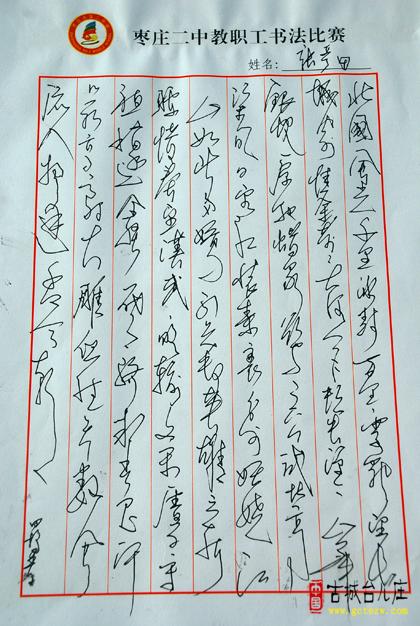 枣庄二中教职工书法比赛
姓名：
北國風光千里冰封万里雪飘望长
城内外惟余莽莽大河上下顿失滔滔山舞
银蛇原驰蜡象欲与天公试比高
须晴日看红装素裹分外妖娆江
山如此多娇引无数英雄竞折
腰惜秦皇汉武略输文采唐宗宋
祖稍逊风骚一代天骄成吉思汗
只识弯弓射大雕俱往矣数风
流人物还看今朝
中国
古城台儿庄
www.gctezw.com